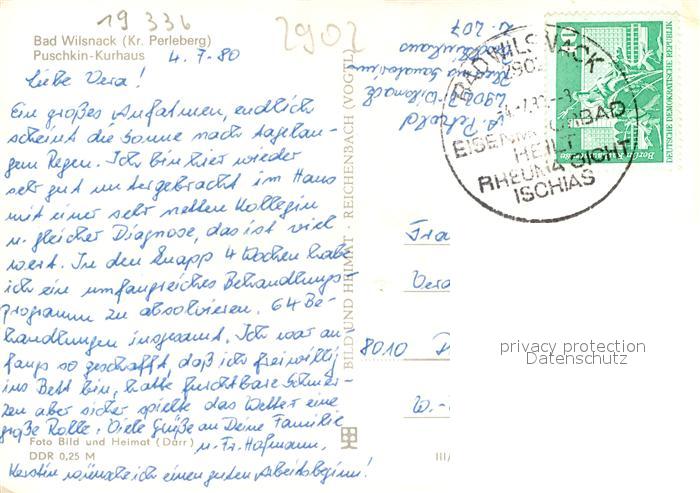 19 336
2902
Bad Wilsnack (Kr. Perleberg)
Puschkin-Kurhaus
4.7.80
Liebe Vera!
Ein großes Aufatmen, endlich
scheint die Sonne nach tagelan-
gem Regen. Ich bin hier wieder
sehr gut untergebracht im Haus
mit einer sehr netten Kollegin
u. gleicher Diagnose, das ist viel
wert. In den knapp 4 Wochen habe
ich ein umfangreiches Behandlungs-
programm zu absolvieren. 64 Be-
handlungen insgesamt. Ich war an-
fangs so geschafft, daß ich freiwillig
ins Bett bin, hatte furchtbare Schmer-
zen aber sicher spielte das Wetter eine
große Rolle. Viele Grüße an Deine Familie
u. Fr. Hofmann.
Kerstin wünsche ich einen guten Arbeitsbeginn!
Foto Bild und Heimat (Darr)
DDR 0,25 M
BILD UND HEIMAT · REICHENBACH (VOGTL)
III/
A. Petzold
2902 Bad Wilsnack
Sanatorium
Z. 207
BAD WILSNACK
2902
EISENMOORBAD
HEILT
RHEUMA GICHT
ISCHIAS
10
DEUTSCHE DEMOKRATISCHE REPUBLIK
Berlin
Vera
8010
W.-
privacy protection
Datenschutz